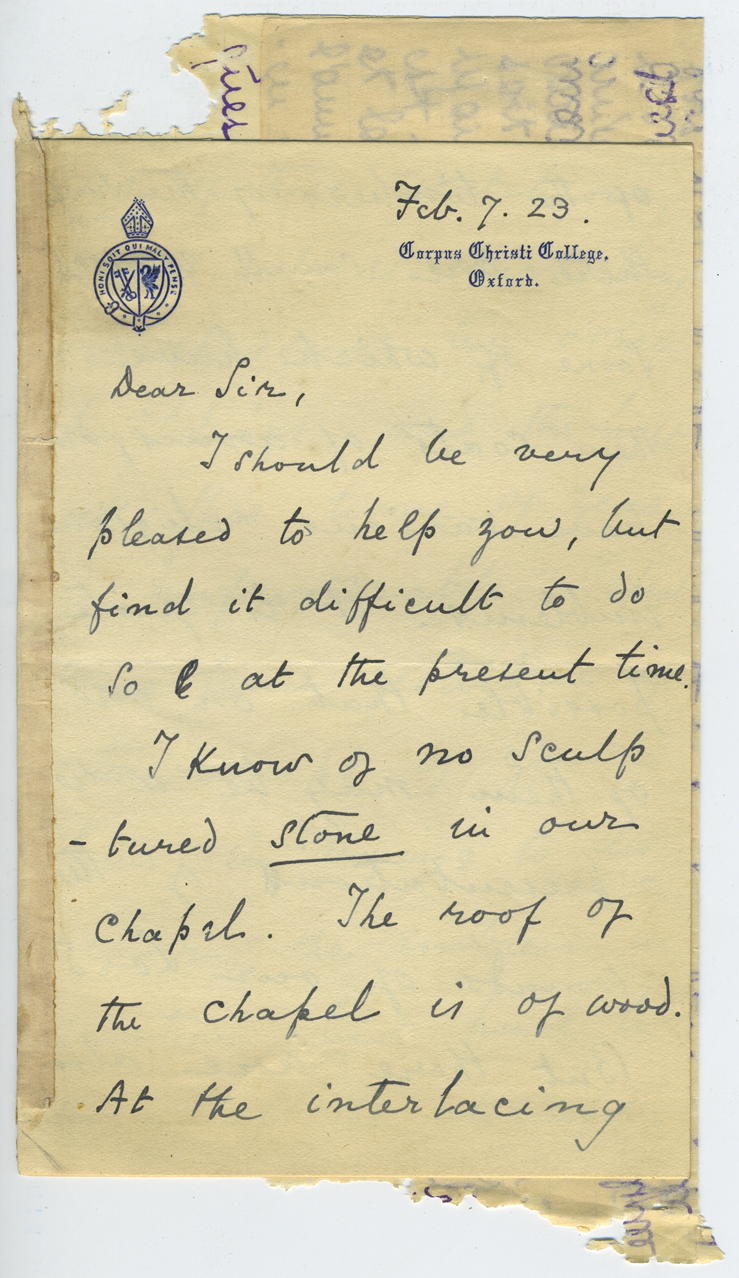 Feb. 7. 23.
Corpus Christi College,
Oxford.
HONI SOIT QUI MAL Y PENSE
Dear Sir,
I should be very
pleased to help you, but
find it difficult to do
so at the present time.
I know of no sculp
-tured stone in our
Chapel. The roof of
the chapel is of wood.
At the interlacing